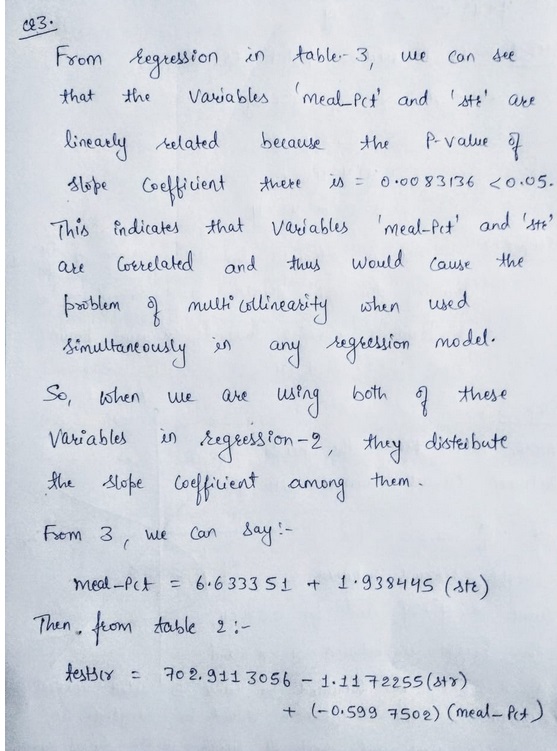 Q3.
From regression in table-3, we can see
that the Variables 'meal_Pct' and 'str' are
linearly related because the P-value of
slope Coefficient there is = 0.0083136 < 0.05.
This indicates that Variables 'meal-Pct' and 'str'
are Correlated and thus would cause the
problem of multicollinearity when used
simultaneously in any regression model.
So, when we are using both of these
Variables in regression-2, they distribute
the slope Coefficient among them.
From 3, we can say:-
meal-Pct = 6.633351 + 1.938445 (str)
Then, from table 2:-
testscr = 702.9113056 - 1.1172255(str)
+ (-0.5997502) (meal-Pct)